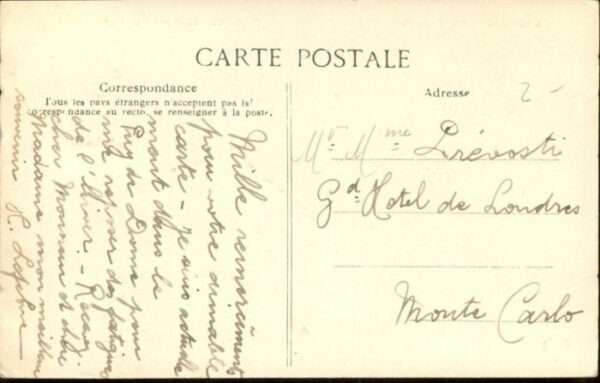 CARTE POSTALE
Correspondance
Tous les pays étrangers n'acceptent pas la
correspondance au recto, se renseigner à la poste.
Adresse
2-
Mille remerciements
pour votre aimable
carte - je suis actuelle
ment dans le
Puy de Dôme pour
me reposer des fatigues
de l'hiver. - Recevez
cher Monsieur et chère
Madame mon meilleur
souvenir H. Lefebvre
Mr. Mme Prévosti
Gd. Hotel de Londres
Monte Carlo